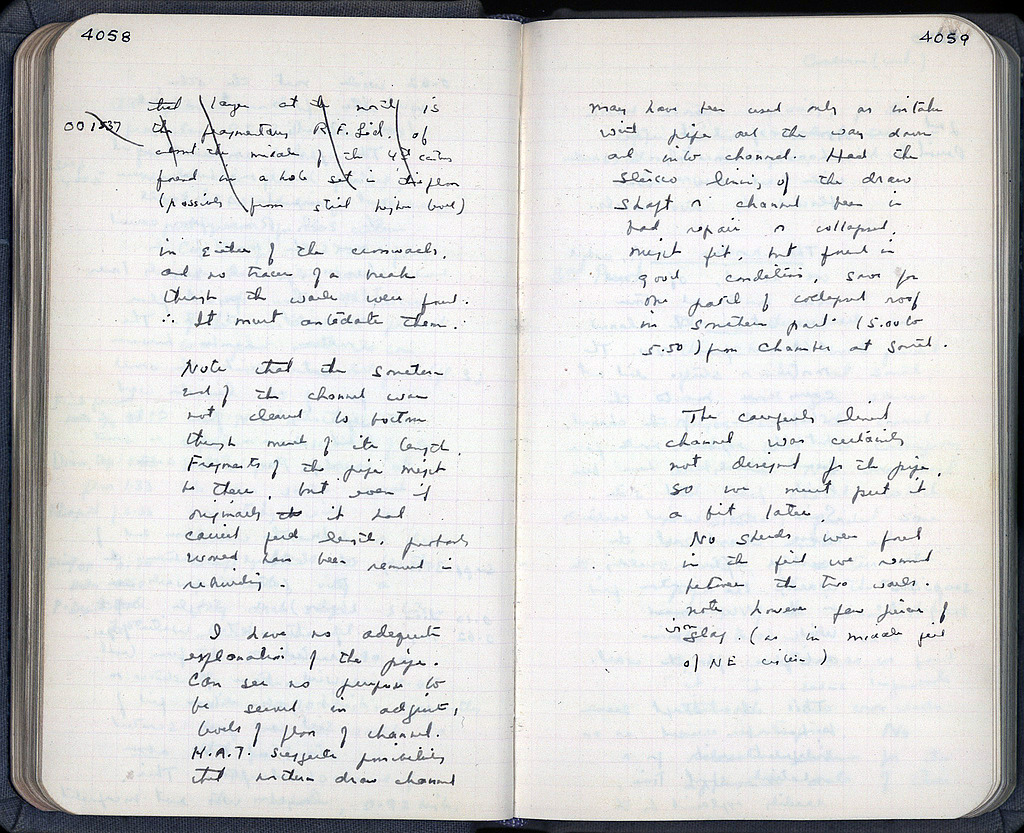 4058
that layer at the north is
001537
the fragmentary R.F. Lid. of
about the middle of the 4th cent.
found in a hole set in the floor
(possibly from still higher level)
in either of the crosswalls.
and no traces of a break
through the walls were found.
∴ It must antedate them.
Note that the southern
end of the channel was
not cleared to bottom
through most of its length.
Fragments of the pipe might
be there, but even if
originally it had
carried full length, probably
would have been removed in
rebuilding.
I have no adequate
explanation of the pipe.
Can see no purpose to
be served in adjusting
levels of floor of channel.
H.A.T. suggests possibility
that northern draw channel
4059
may have been used only as intake
with pipe all the way down
and into channel. Had the
stucco lining of the draw
shaft or channel been in
bad repair or collapsed,
might fit, but found in
good condition, save for
one patch of collapsed roof
in southern part (5.00 to
5.50) from chamber at south.
The carefully lined
channel was certainly
not designed for the pipe,
so we must put it
a bit later.
No sherds were found
in the fill we removed
between the two walls.
note however few pieces of
iron slag. (as in middle fill
of NE cistern)